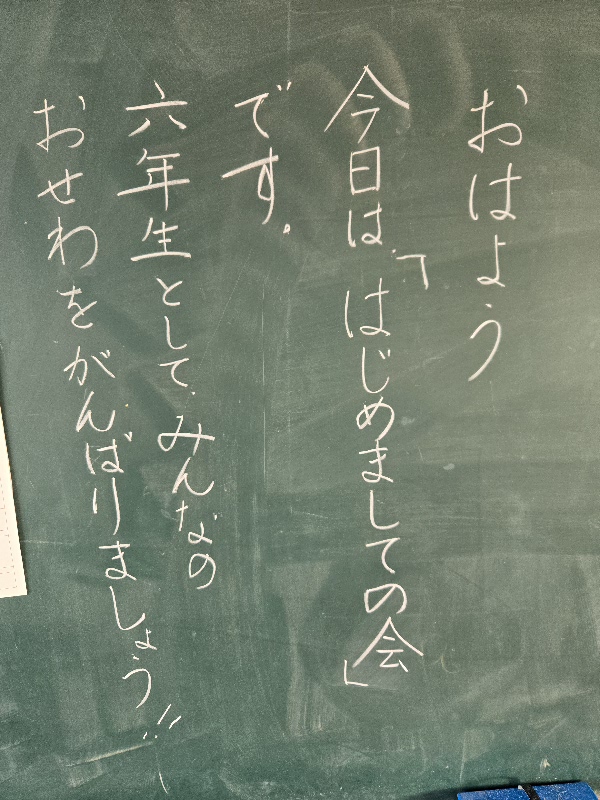 おはよう
今日は「はじめましての会」
です。
六年生としてみんなの
おせわをがんばりましょう!!